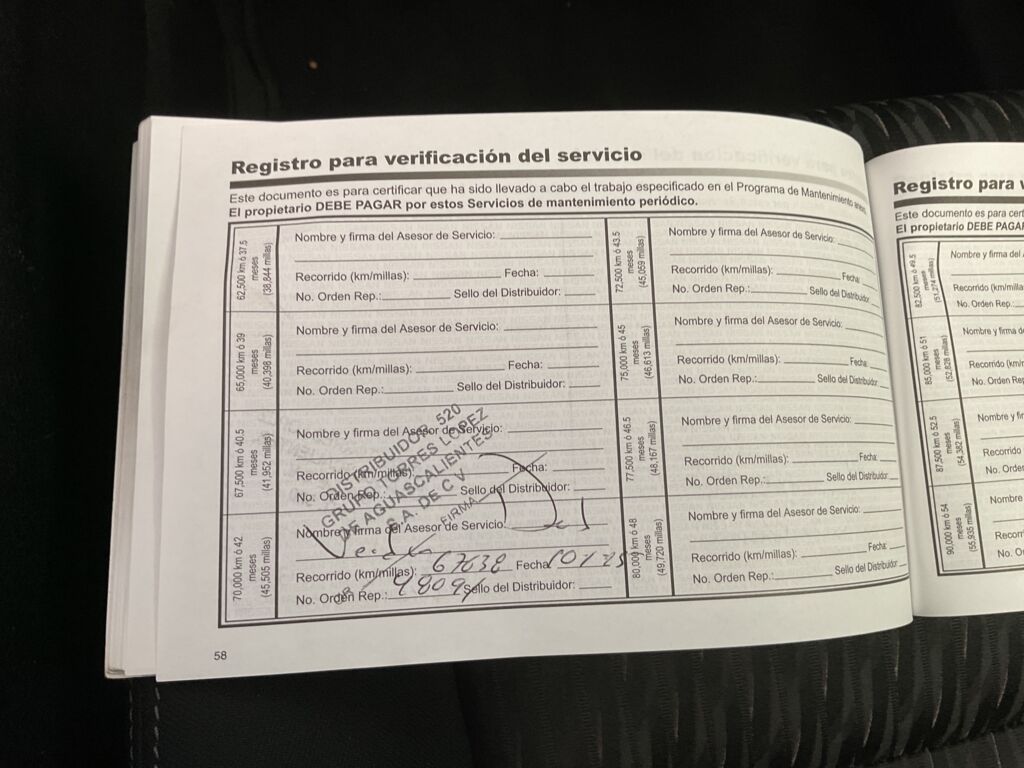 Registro para verificación del servicio
Este documento es para certificar que ha sido llevado a cabo el trabajo especificado en el Programa de Mantenimiento anexo.
El propietario DEBE PAGAR por estos Servicios de mantenimiento periódico.
62,500 km ó 37.5
meses
(38,844 millas)
Nombre y firma del Asesor de Servicio:
Recorrido (km/millas): Fecha:
No. Orden Rep.: Sello del Distribuidor:
65,000 km ó 39
meses
(40,398 millas)
Nombre y firma del Asesor de Servicio:
Recorrido (km/millas): Fecha:
No. Orden Rep.: Sello del Distribuidor:
67,500 km ó 40.5
meses
(41,952 millas)
Nombre y firma del Asesor de Servicio:
Recorrido (km/millas): Fecha:
No. Orden Rep.: Sello del Distribuidor:
DISTRIBUIDOR 520
GRUPO TORRES LOPEZ
DE AGUASCALIENTES
S.A. DE C V
FIRMA
70,000 km ó 42
meses
(45,505 millas)
Nombre y firma del Asesor de Servicio:
Recorrido (km/millas): 67638 Fecha:
No. Orden Rep.: Sello del Distribuidor:
72,500 km ó 43.5
meses
(45,059 millas)
Nombre y firma del Asesor de Servicio:
Recorrido (km/millas): Fecha:
No. Orden Rep.: Sello del Distribuidor:
75,000 km ó 45
meses
(46,613 millas)
Nombre y firma del Asesor de Servicio:
Recorrido (km/millas): Fecha:
No. Orden Rep.: Sello del Distribuidor:
77,500 km ó 46.5
meses
(48,167 millas)
Nombre y firma del Asesor de Servicio:
Recorrido (km/millas): Fecha:
No. Orden Rep.: Sello del Distribuidor:
80,000 km ó 48
meses
(49,720 millas)
Nombre y firma del Asesor de Servicio:
Recorrido (km/millas): Fecha:
No. Orden Rep.: Sello del Distribuidor:
58
Registro para
Este documento es para
El propietario DEBE PAGAR
82,500 km ó 49.5
meses
(51,274 millas)
Nombre y firma del
Recorrido (km/millas
No. Orden Rep.:
85,000 km ó 51
meses
(52,828 millas)
Nombre y firma
Recorrido (km/
No. Orden Rep
87,500 km ó 52.5
meses
(54,382 millas)
Nombre y
Recorrido
No. Orden
90,000 km ó 54
meses
(55,935 millas)
Nombre